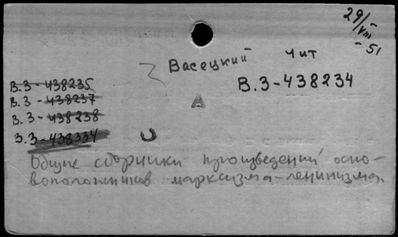 29/VIII-51
Васецкий Чит
В.3-438234
В.3-438235
В.3-438237
В.3-438238
В.3-438334
Общие сборники произведений осно-
воположников марксизма-ленинизма.